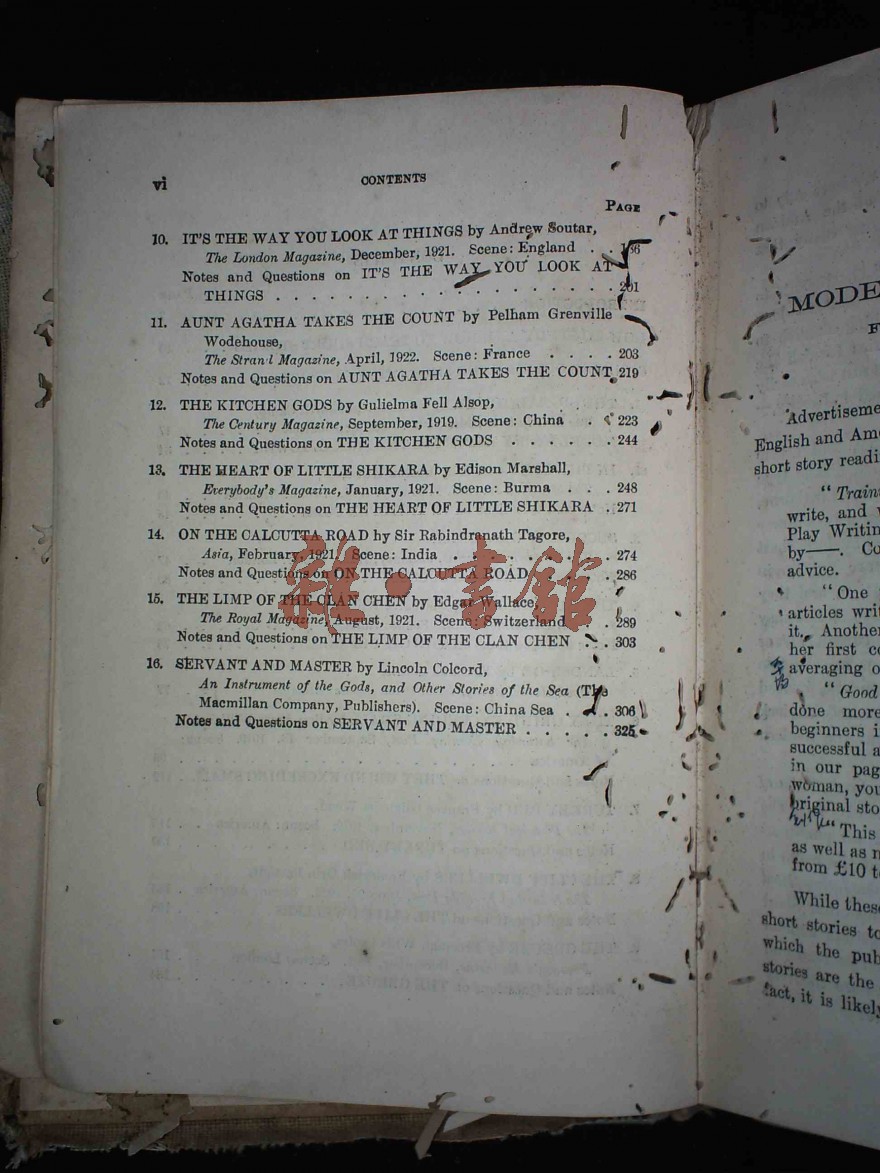 vi
CONTENTS
PAGE
10. IT'S THE WAY YOU LOOK AT THINGS by Andrew Soutar,
The London Magazine, December, 1921. Scene: England . .
Notes and Questions on IT'S THE WAY YOU LOOK AT
THINGS . . . . . . . . . . . . . . . . . 201
11. AUNT AGATHA TAKES THE COUNT by Pelham Grenville
Wodehouse,
The Strand Magazine, April, 1922. Scene: France . . . . 203
Notes and Questions on AUNT AGATHA TAKES THE COUNT 219
12. THE KITCHEN GODS by Gulielma Fell Alsop,
The Century Magazine, September, 1919. Scene: China . . 223
Notes and Questions on THE KITCHEN GODS . . . . . . 244
13. THE HEART OF LITTLE SHIKARA by Edison Marshall,
Everybody's Magazine, January, 1921. Scene: Burma . . . 248
Notes and Questions on THE HEART OF LITTLE SHIKARA . 271
14. ON THE CALCUTTA ROAD by Sir Rabindranath Tagore,
Asia, February, 1921. Scene: India . . . . . . . . 274
Notes and Questions on ON THE CALCUTTA ROAD . . . . 286
15. THE LIMP OF THE CLAN CHEN by Edgar Wallace,
The Royal Magazine, August, 1921. Scene: Switzerland . . 289
Notes and Questions on THE LIMP OF THE CLAN CHEN . . 303
16. SERVANT AND MASTER by Lincoln Colcord,
An Instrument of the Gods, and Other Stories of the Sea (The
Macmillan Company, Publishers). Scene: China Sea . . . 306
Notes and Questions on SERVANT AND MASTER . . . . . 325
雜·書館
MODE
F
Advertiseme
English and Ame
short story readi
"Traini
write, and
Play Writin
by——. Co
advice.
"One
articles writ
it. Another
her first co
averaging o
"Good
done more
beginners i
successful a
in our pag
woman, you
original sto
"This
as well as n
from £10 t
While these
short stories to
which the pub
stories are the
fact, it is likely